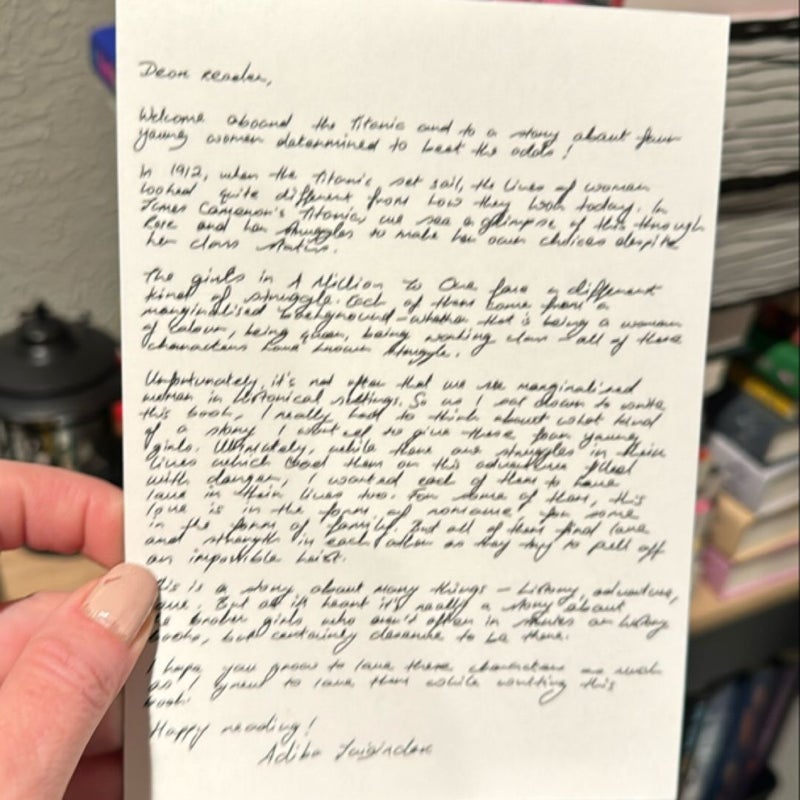 Dear reader,
Welcome aboard the Titanic and to a story about four
young women determined to beat the odds!
In 1912, when the Titanic set sail, the lives of women
looked quite different from how they look today. In
James Cameron's Titanic, we see a glimpse of this through
Rose and her struggles to make her own choices despite
her class status.
The girls in A Million To One face a different
kind of struggle. Each of them come from a
marginalised background – whether that is being a woman
of colour, being queer, being working class – all of these
characters have known struggle.
Unfortunately, it's not often that we see marginalised
women in historical settings. So as I sat down to write
this book, I really had to think about what kind
of a story I wanted to give these four young
girls. Ultimately, while there are struggles in their
lives which lead them on this adventure filled
with danger, I wanted each of them to have
love in their lives too. For some of them, this
love is in the form of romance, for some
in the form of family. But all of them find love
and strength in each other as they try to pull off
an impossible heist.
is a story about many things – history, adventure,
But at its heart it's really a story about
broken girls who aren't often in stories or history
books, but certainly deserve to be there.
I hope you grow to love these characters as much
as I grew to love them while writing this
book.
Happy reading!
Adiba Jaigirdar